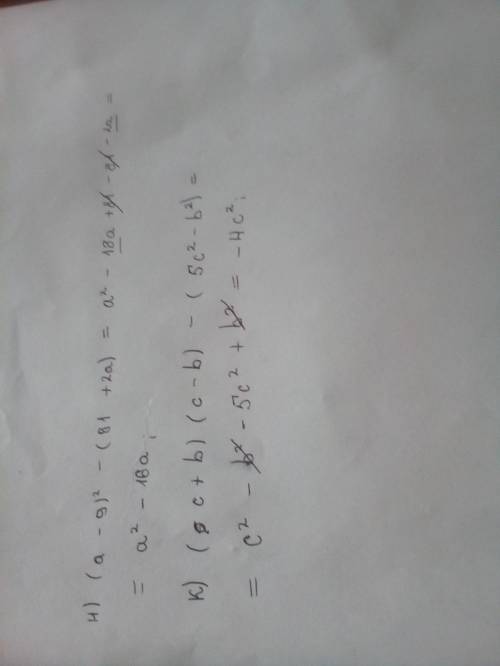 н) (a - 9)² - (81 + 2a) = a² - 18a + 81 - 81 - 2a =
= a² - 18a;
к) (c + b) (c - b) - (5c² - b²) =
= c² - b² - 5c² + b² = - 4c²;